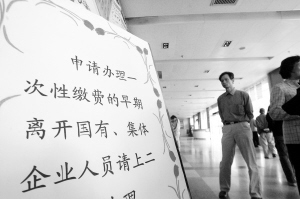 申请办理一
次性缴费的早期
离开国有、集体
企业人员请上二